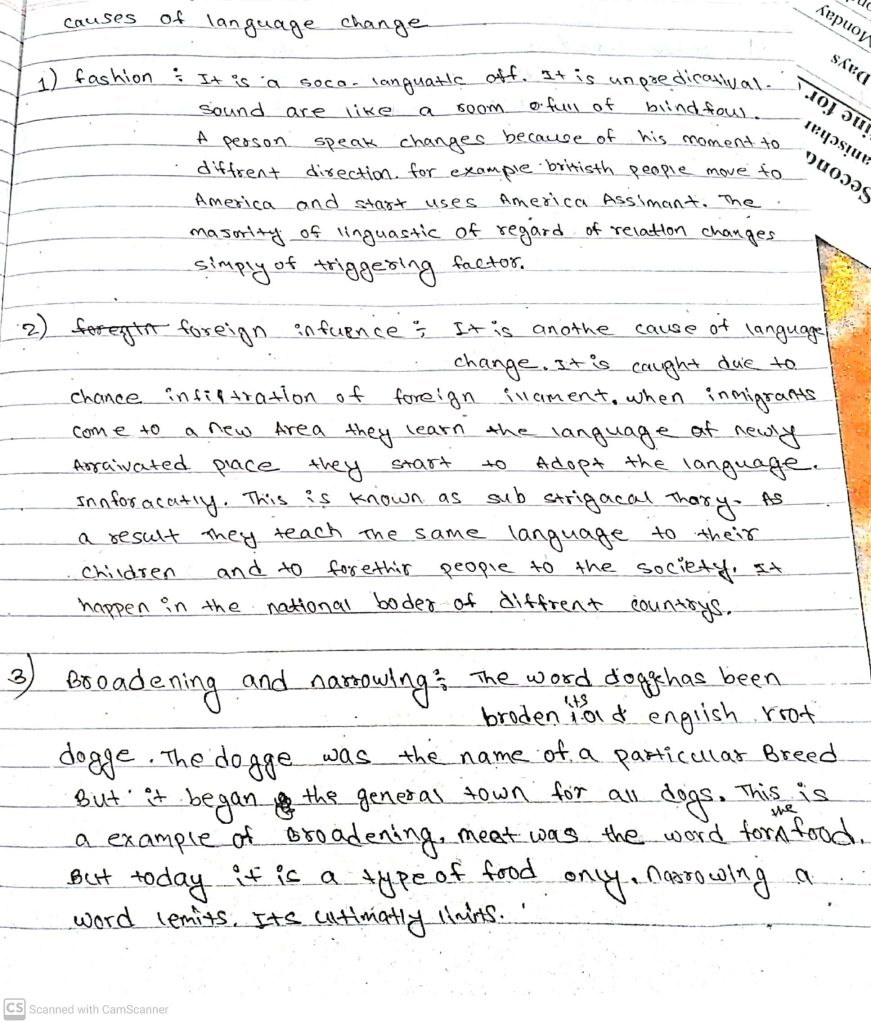 causes of language change
1) fashion : It is a soco-languatic off. It is unpredicatival.
sound are like a room o full of blind foul.
A person speak changes because of his moment to
diffrent direction. for example britisth people move to
America and start uses America Assimant. The
majority of linguastic of regard of relation changes
simply of triggering factor.
2) foregin foreign infuence : It is anothe cause of language
change. It is caught due to
chance infiltration of foreign illament. when inmigrants
come to a new Area they learn the language of newly
Arraivated place they start to Adopt the language.
Innforacatly. This is known as sub strigacal Thory. As
a result They teach The same language to their
children and to forethir people to the society. It
happen in the national boder of diffrent countrys.
3) Broadening and narrowing : The word dogge has been
broden its old english root
dogge. The dogge was the name of a particular Breed
But it began the general town for all dogs. This is
a example of Broadening. meet was the word for the food.
But today it is a type of food only. Narrowing a
word lemits. Its ultimatly limits.
Second
Days
Monday
CS Scanned with CamScanner